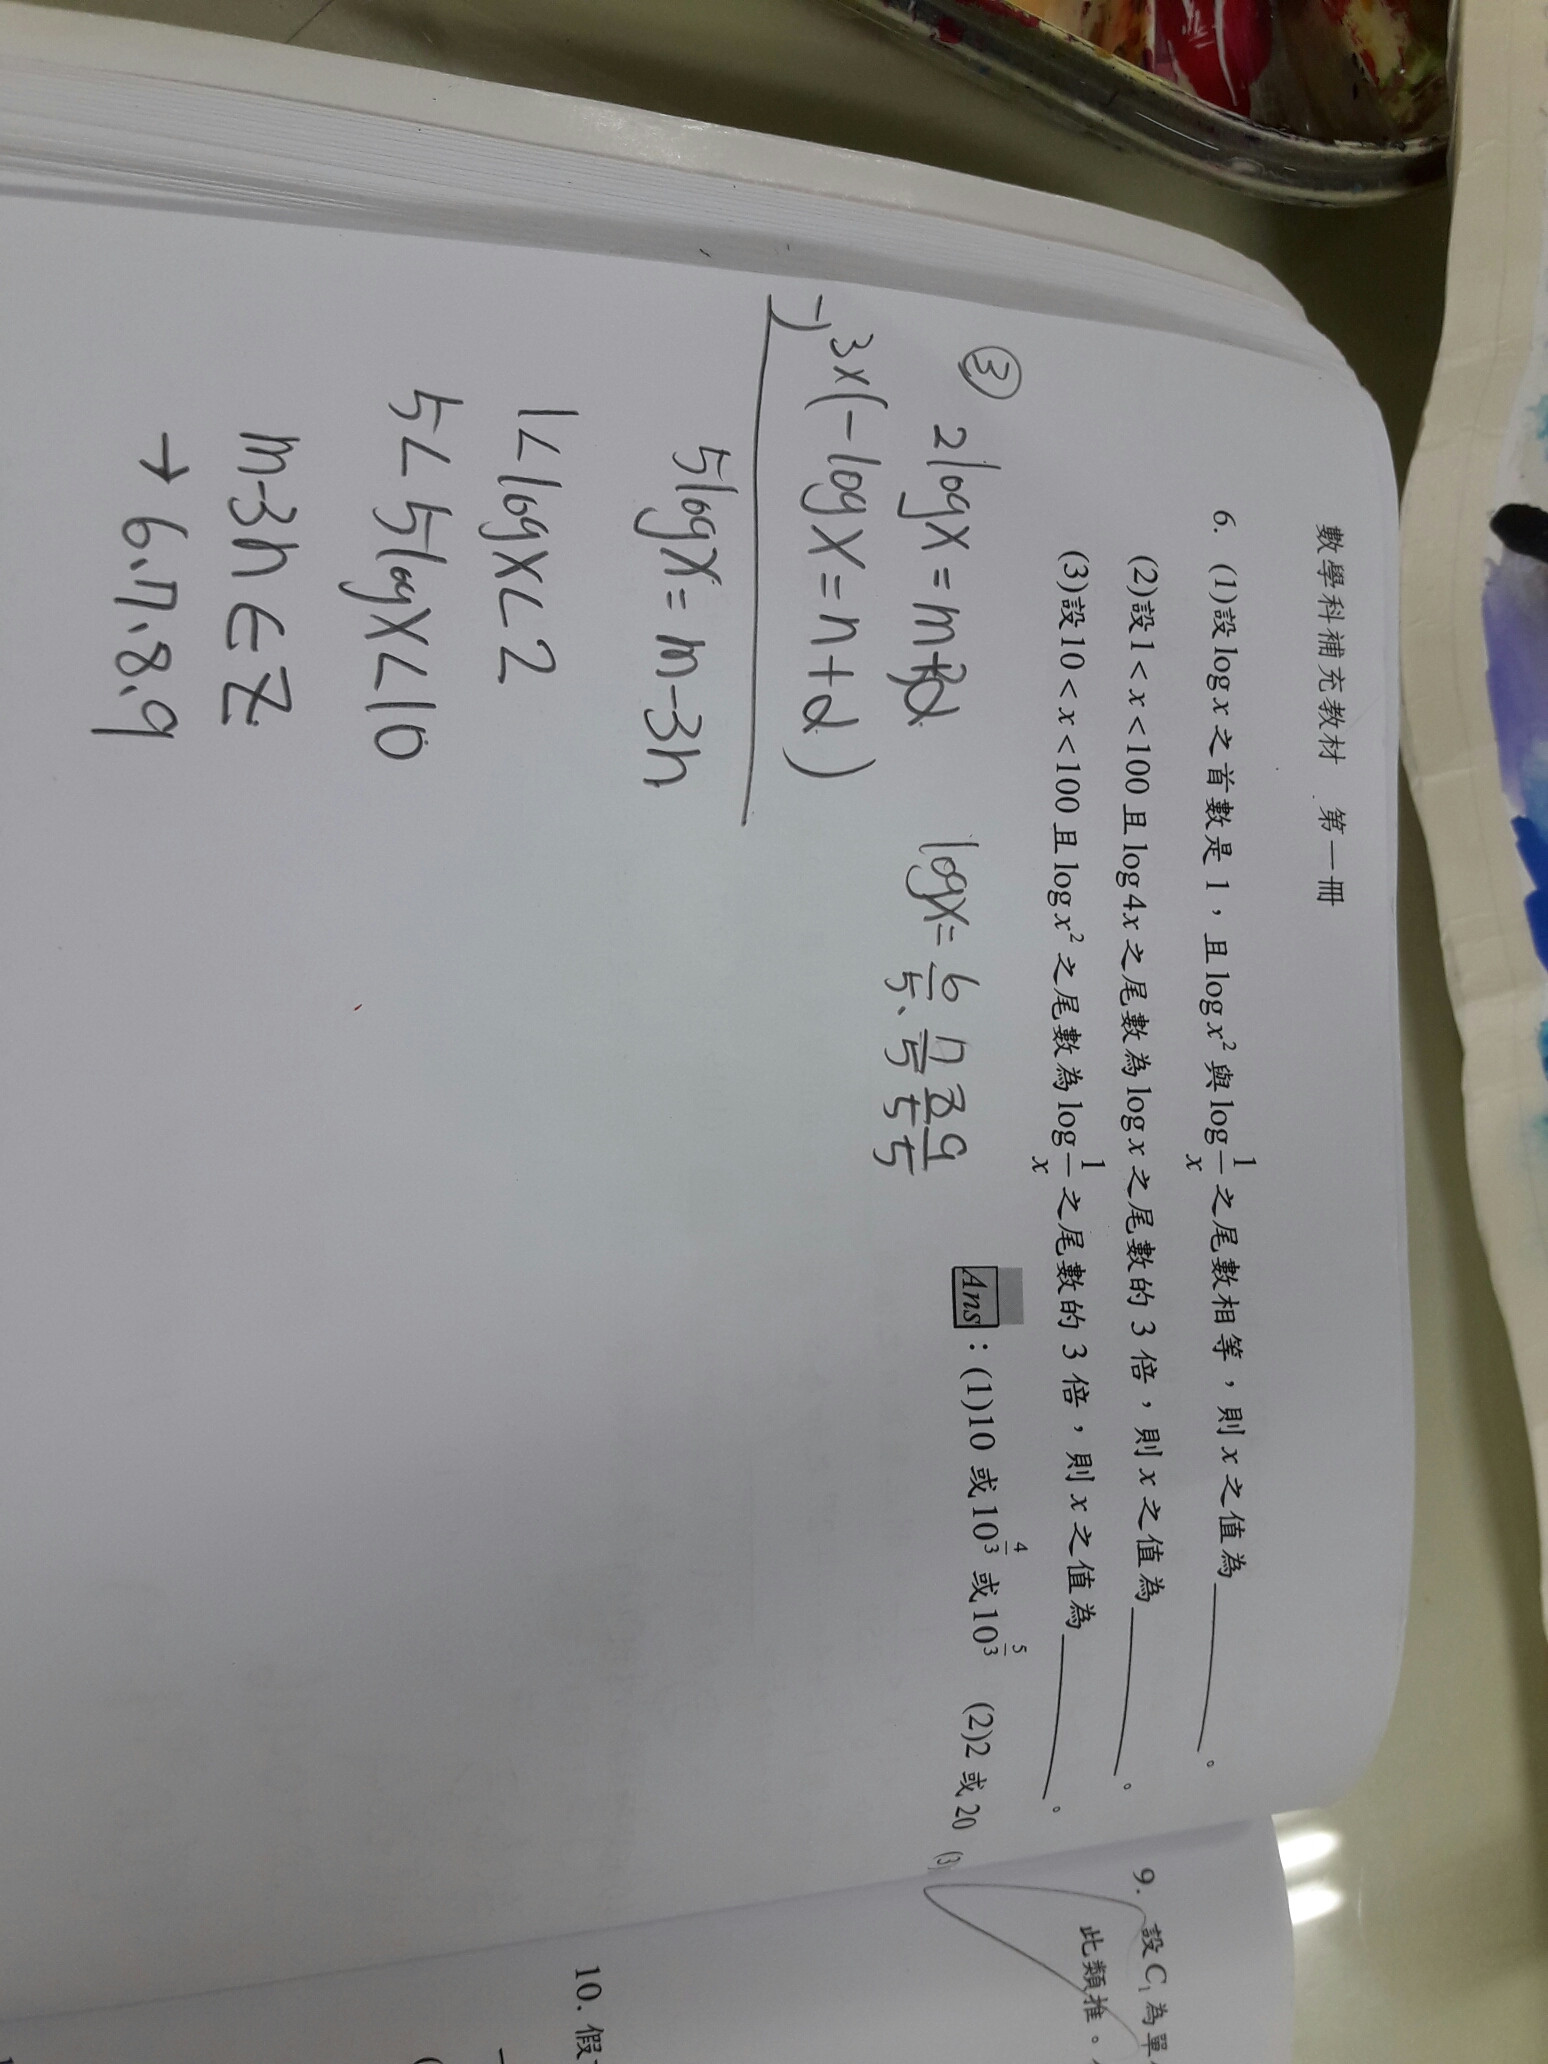 數學科補充教材 第一冊
6. (1)設 log x 之首數是 1，且 log x² 與 log 1/x 之尾數相等，則 x 之值為________。
(2)設 1 < x < 100 且 log 4x 之尾數為 log x 之尾數的 3 倍，則 x 之值為________。
(3)設 10 < x < 100 且 log x² 之尾數為 log 1/x 之尾數的 3 倍，則 x 之值為________。
Ans：(1)10 或 10^(4/3) 或 10^(5/3) (2)2 或 20 (3)
③ 2logx = m+3α
-) 3x(-logx = n+α)
5logx = m-3n
1<logx<2
5<5logx<10
m-3n ∈ Z
→ 6、7、8、9
logx = 6/5、7/5 8/5 9/5
9. 設 C₁ 為單
此類推。
10. 假